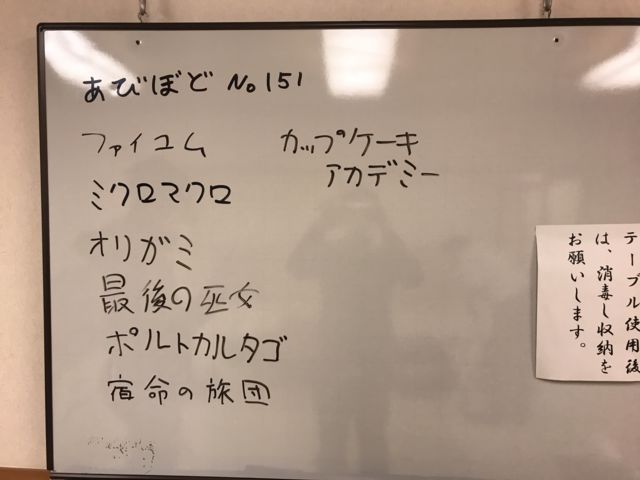 あびぼど No151
ファイユム
ミクロマクロ
オリガミ
最後の巫女
ポルトカルタゴ
宿命の旅団
カップケーキ
アカデミー
テーブル使用後
は、消毒し収納を
お願いします。